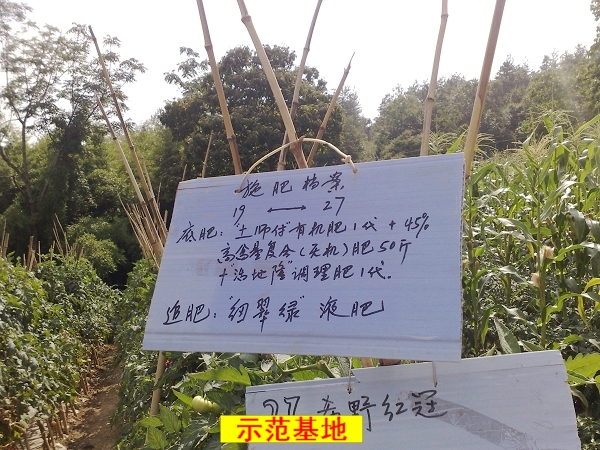 施肥档案
19 ⟷ 27
底肥："土师付"有机肥1代+45%
高含量复合(无机)肥50斤
+"治地隆"调理肥1代.
追肥："翠绿"液肥
27 野红冠
示范基地